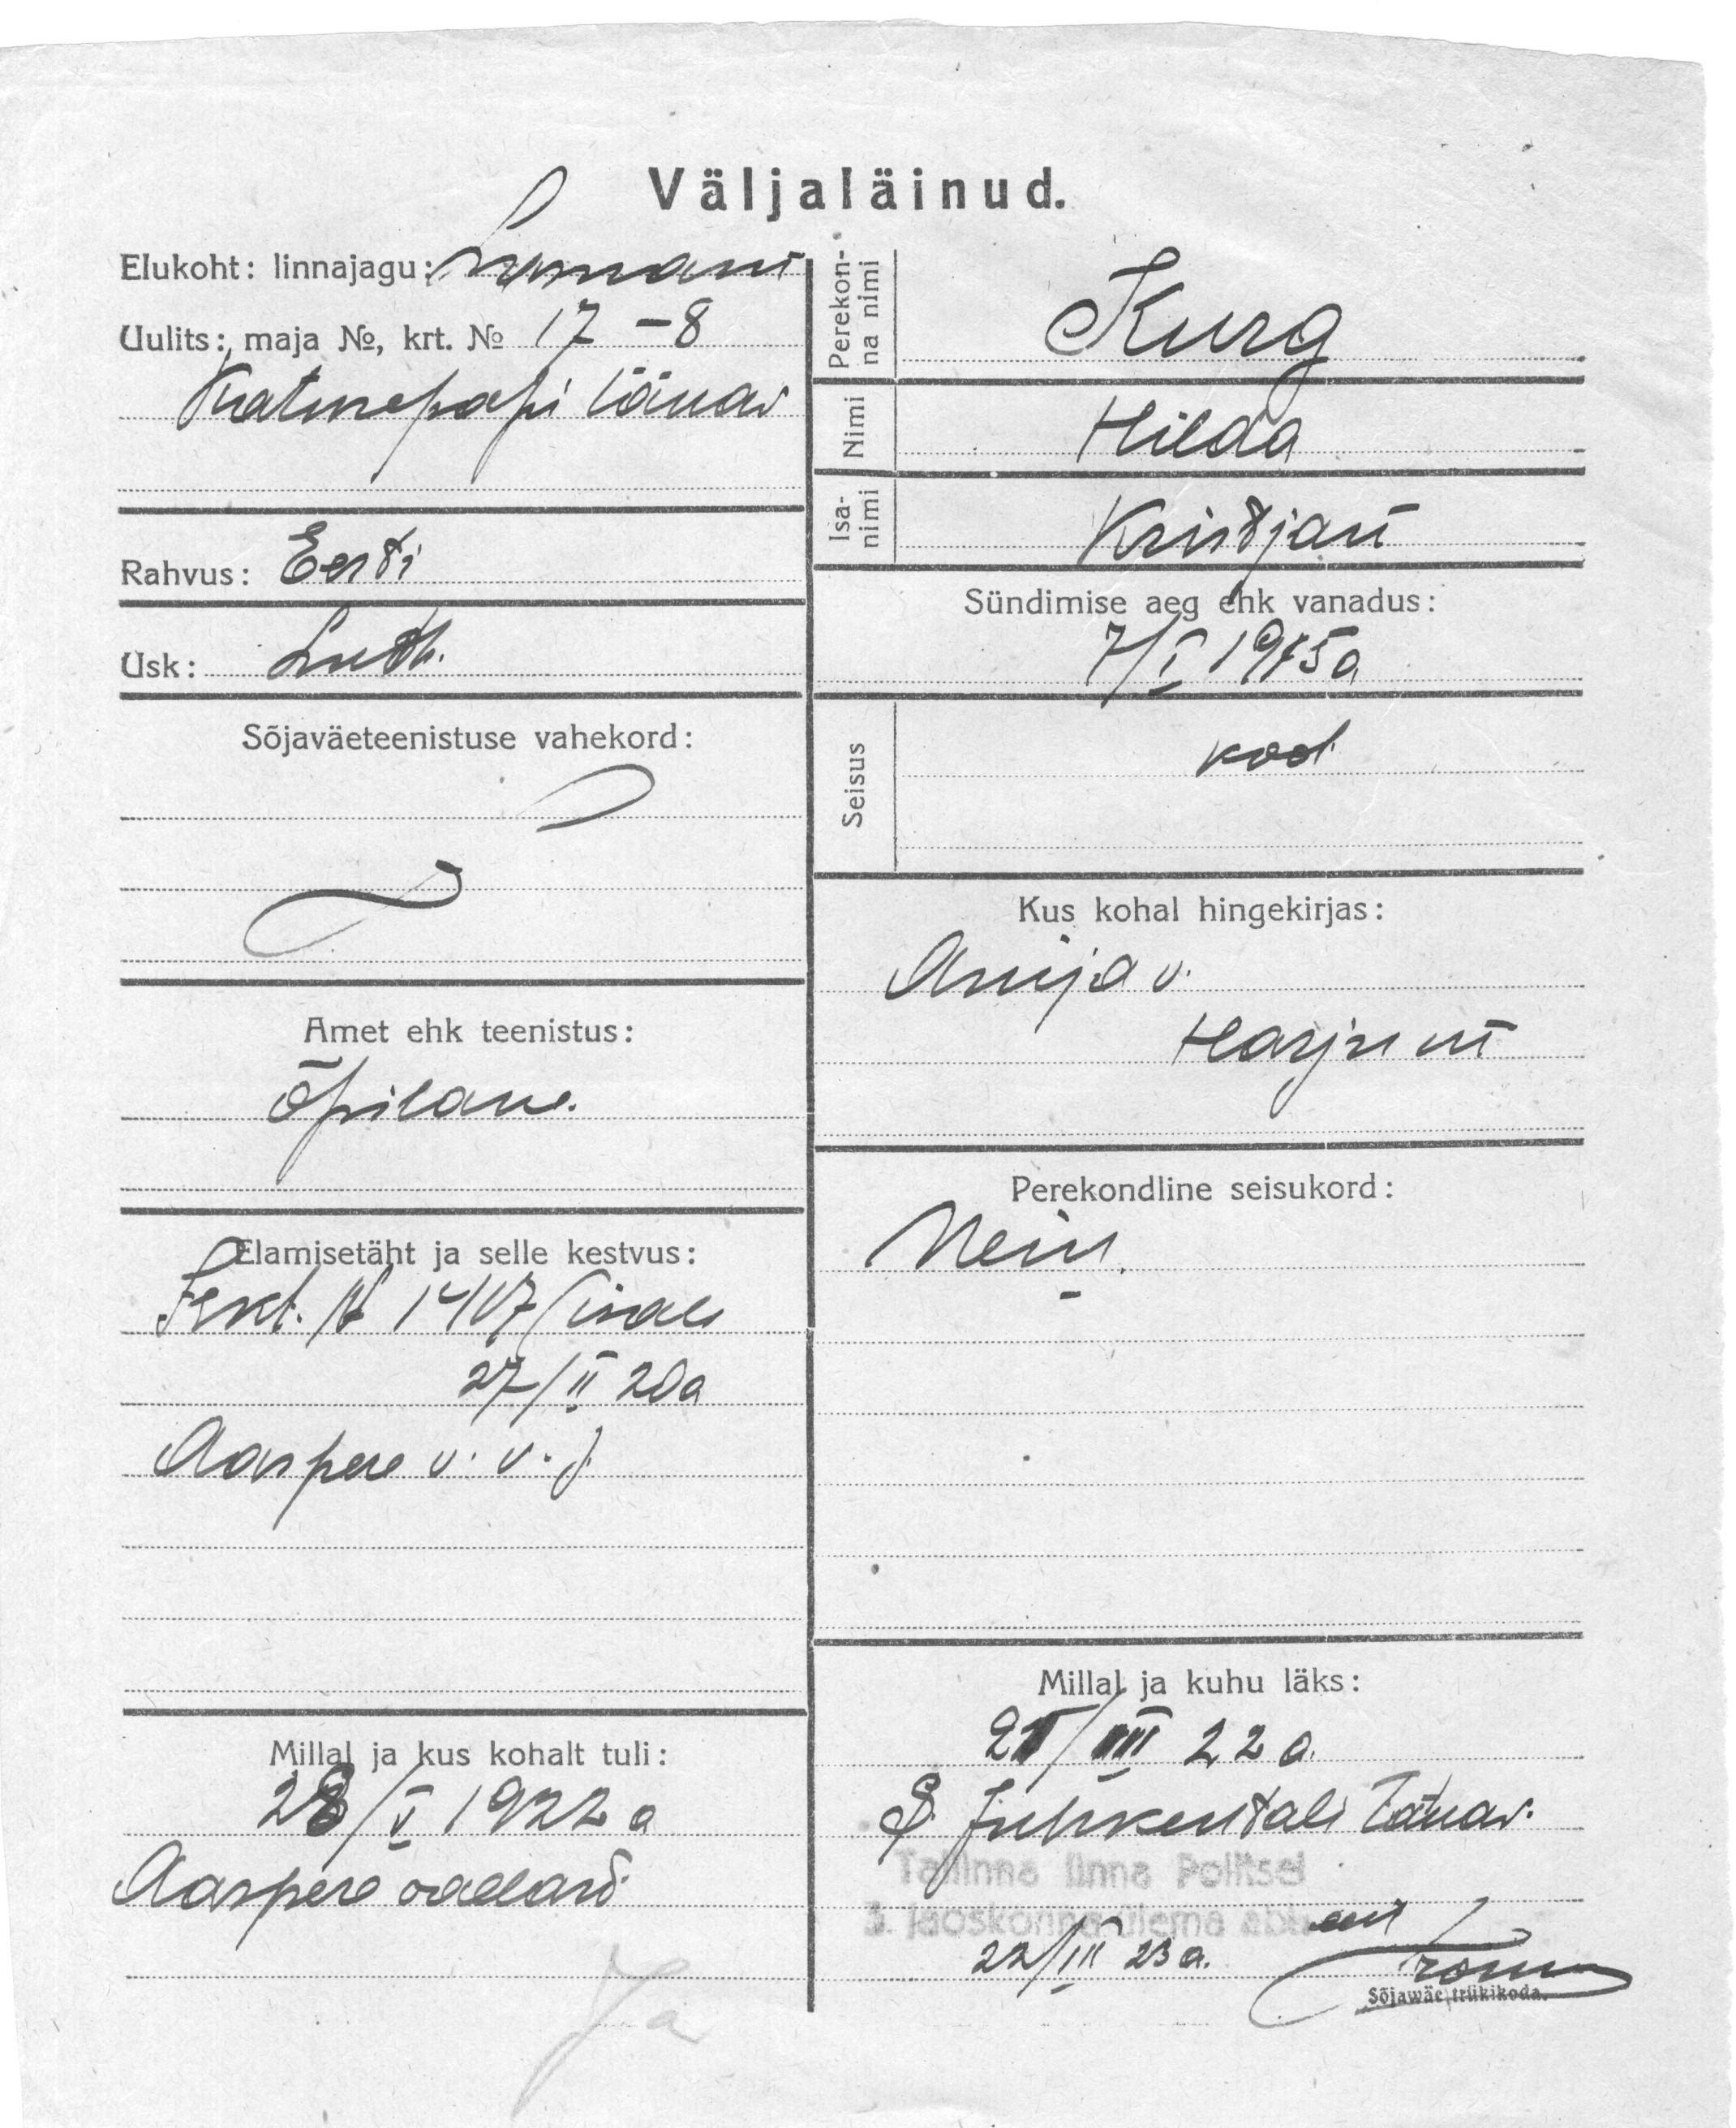 Väljaläinud.
Elukoht: linnajagu:
Uulits:, maja №, krt. № 17 – 8
tänav
Rahvus: Eesti
Usk: Luth.
Sõjaväeteenistuse vahekord:
Amet ehk teenistus:
õpilane.
Elamisetäht ja selle kestvus:
27/II 20a
Aaspere v. v. p.
Millal ja kus kohalt tuli:
28/V 1922 a
Aaspere vallast
Ja
Perekon-
na nimi
Kurg
Nimi
Hilda
Isa-
nimi
Kristjan
Sündimise aeg ehk vanadus:
7/I
Seisus
kod.
Kus kohal hingekirjas:
Anija v.
Harju m
Perekondline seisukord:
Neiu.
Millal ja kuhu läks:
22 a.
S. Juhkentali tänav.
Tallinna linna Politsei
3. jaoskonna ülema abi
22/III 23 a.
Sõjawäe trükikoda.